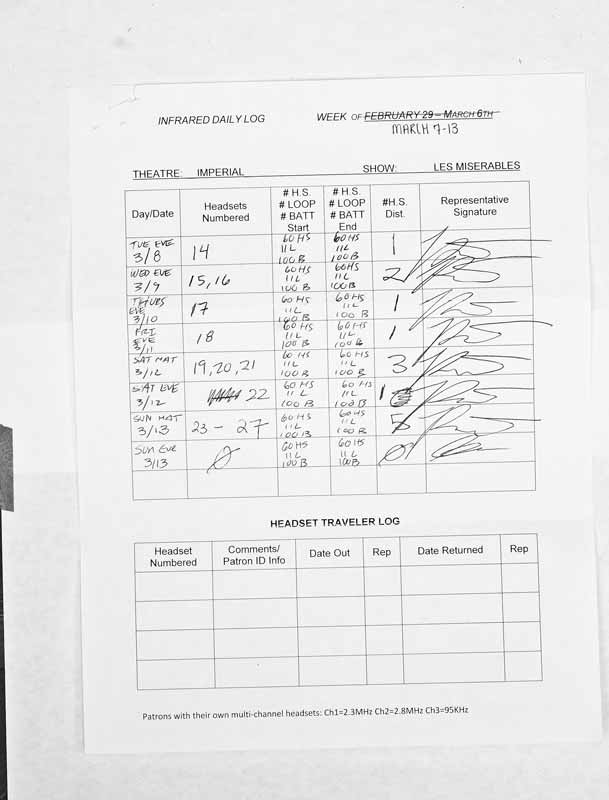 INFRARED DAILY LOG WEEK OF FEBRUARY 29 – MARCH 6TH
MARCH 7-13
THEATRE: IMPERIAL SHOW: LES MISERABLES
Day/Date Headsets Numbered # H.S. # LOOP # BATT Start # H.S. # LOOP # BATT End #H.S. Dist. Representative Signature
TUE EVE 3/8 14 60 HS 11 L 100 B 60 HS 11 L 100 B 1
WED EVE 3/9 15, 16 60 HS 11 L 100 B 60 HS 11 L 100 B 2
THURS EVE 3/10 17 60 HS 11 L 100 B 60 HS 11 L 100 B 1
FRI EVE 3/11 18 60 HS 11 L 100 B 60 HS 11 L 100 B 1
SAT MAT 3/12 19, 20, 21 60 HS 11 L 100 B 60 HS 11 L 100 B 3
SAT EVE 3/12 22 60 HS 11 L 100 B 60 HS 11 L 100 B 1
SUN MAT 3/13 23 - 27 60 HS 11 L 100 B 60 HS 11 L 100 B 5
SUN EVE 3/13 0 60 HS 11 L 100 B 60 HS 11 L 100 B 0
HEADSET TRAVELER LOG
Headset Numbered Comments/ Patron ID Info Date Out Rep Date Returned Rep
Patrons with their own multi-channel headsets: Ch1=2.3MHz Ch2=2.8MHz Ch3=95KHz